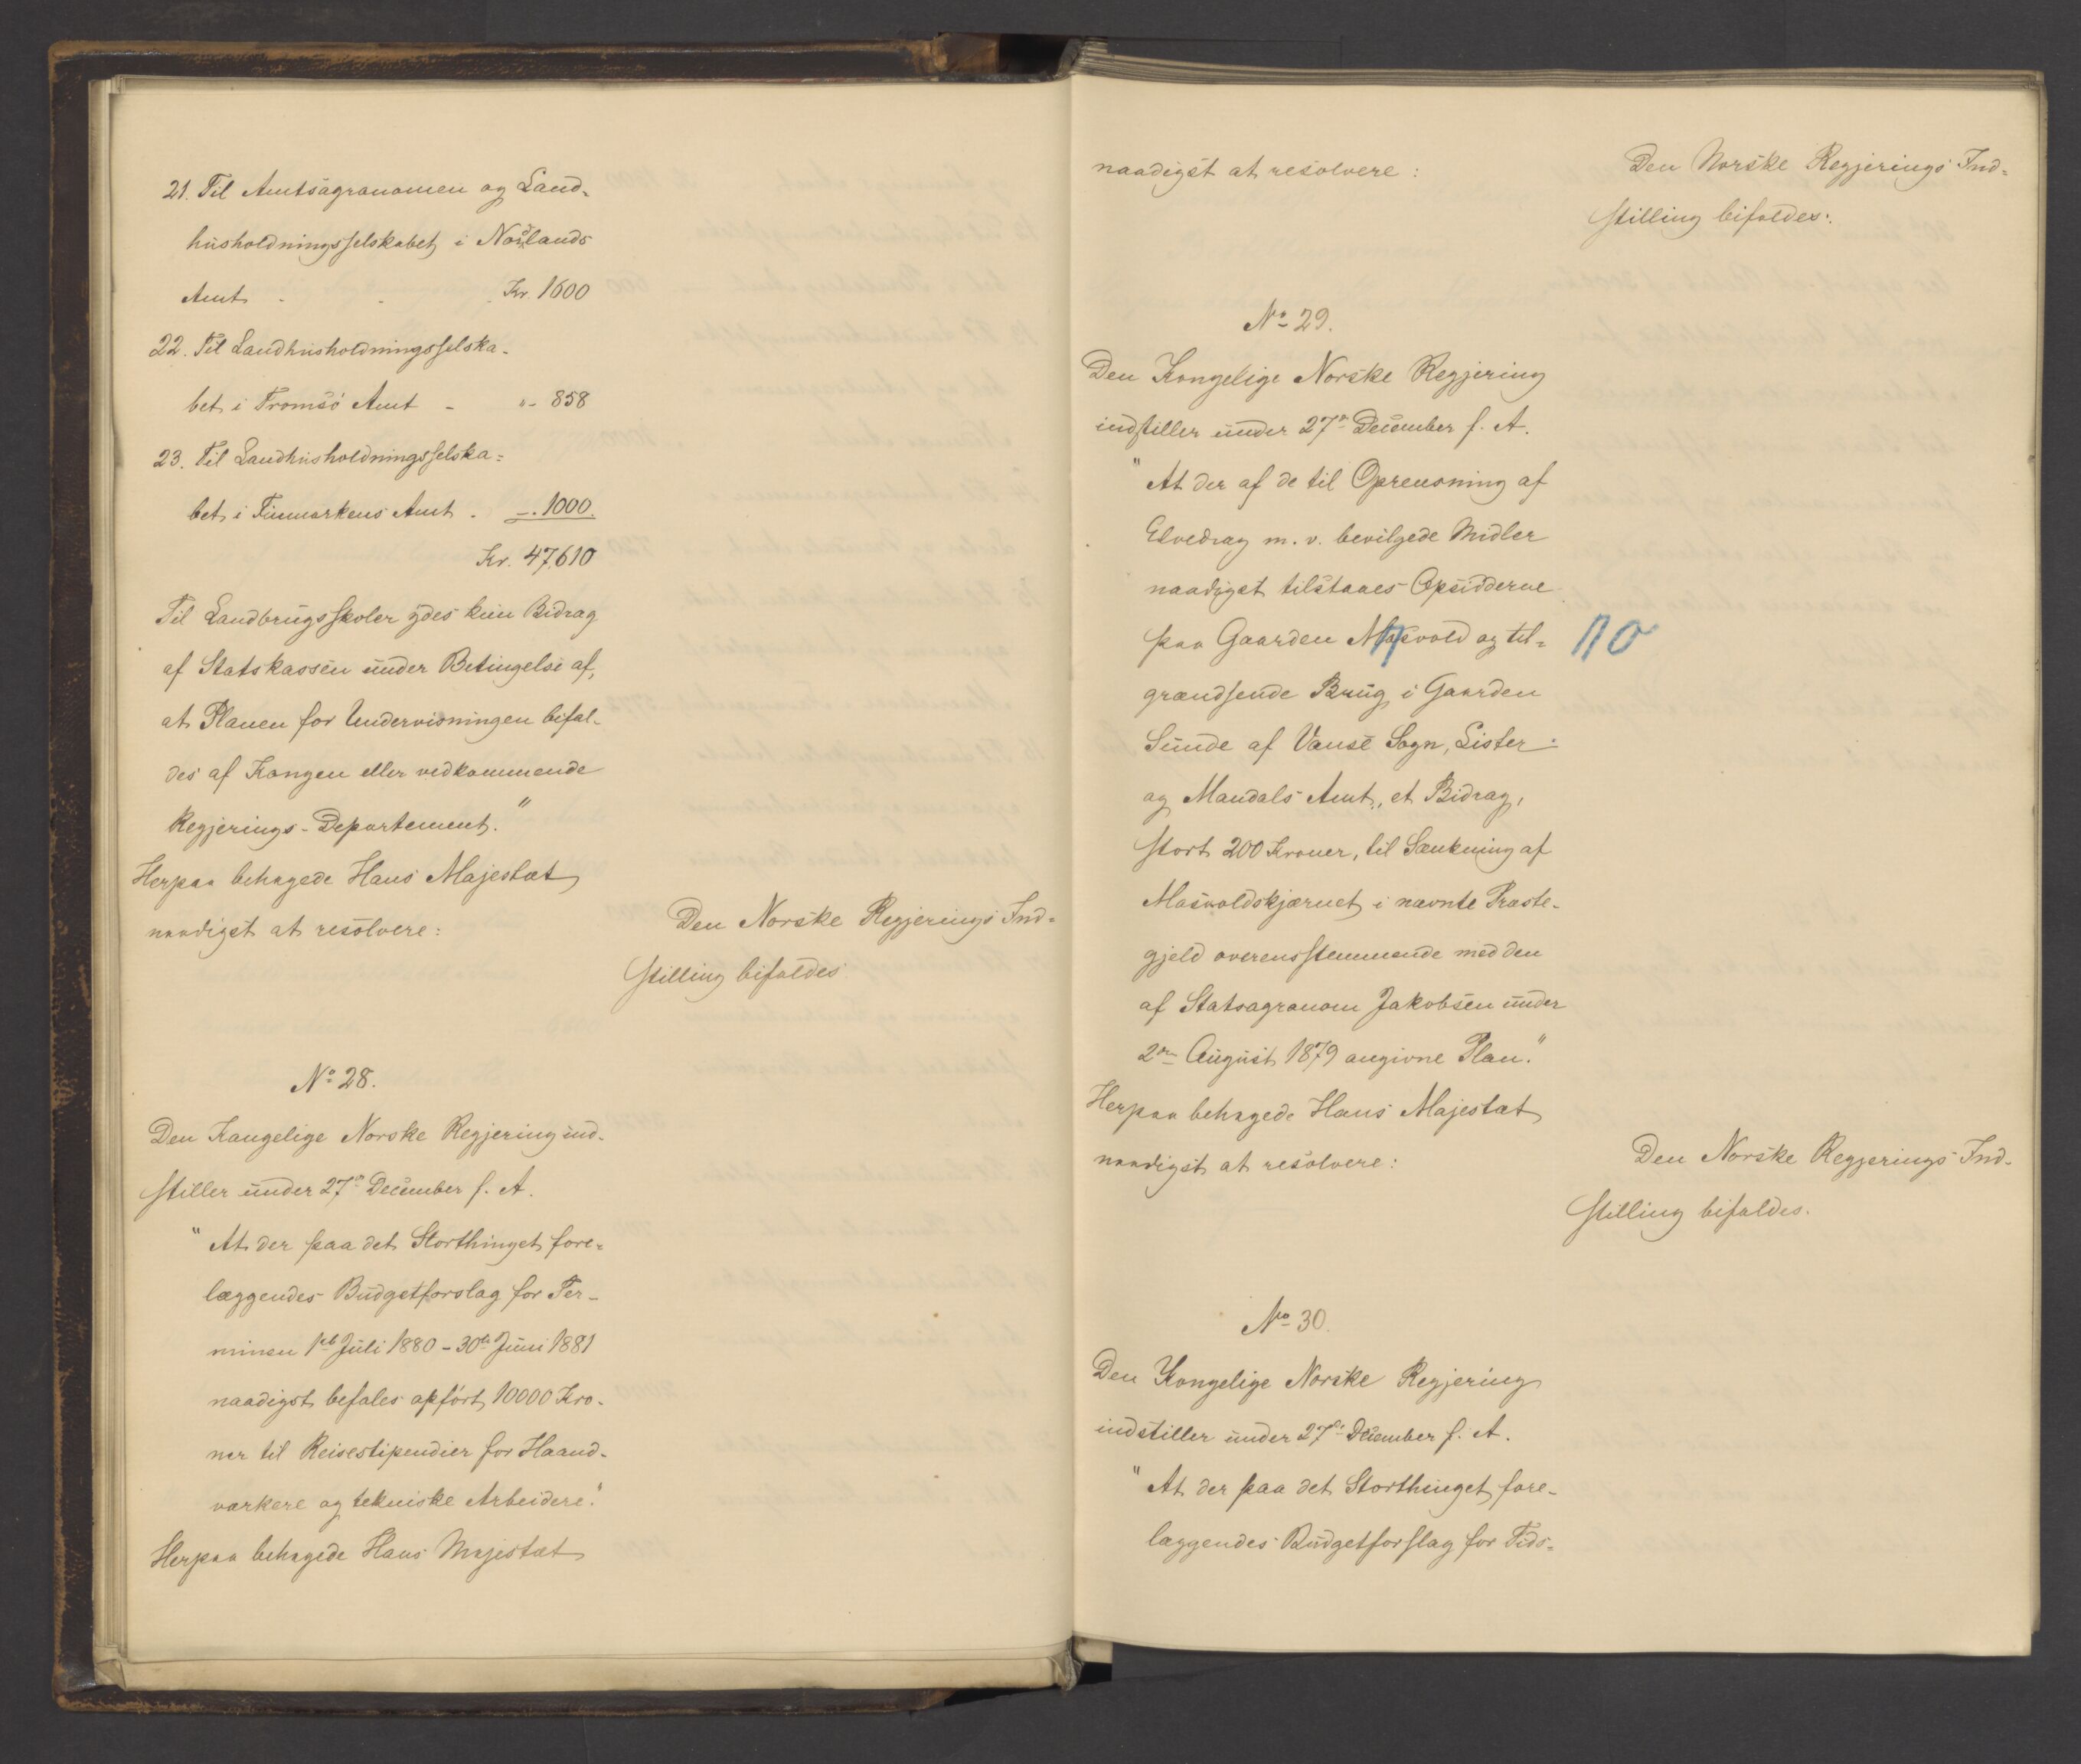 21. Til Amtsagronomen og Land-
husholdningsselskabet i Nordlands
Amt - - Kr. 1600
22. Til Landhusholdningsselska-
bet i Tromsö Amt - "- 858
23. Til Landhusholdningsselska=
bet i Finmarkens Amt . -. 1000.
Kr. 47,610
Til Landbrugsskoler ydes kun Bidrag
af Statskassen under Betingelse af,
at Planen for Undervisningen bifal-
des af Kongen eller vedkommende
Regjerings-Departement."
Herpaa behagede Hans Majestæt
naadigst at resolvere:
Den Norske Regjerings Ind=
stilling bifaldes
No 28.
Den Kongelige Norske Regjering ind-
stiller under 27de December f. A.
"At der paa det Storthinget fore=
læggendes Budgetforslag for Ter-
minen 1ste Juli 1880 - 30te Juni 1881
naadigst befales opfört 10000 Kro-
ner til Reisestipendier for Haand-
værkere og tekniske Arbeidere."
Herpaa behagede Hans Majestæt
naadigst at resolvere:
Den Norske Regjerings Ind=
stilling bifaldes.
No 29.
Den Kongelige Norske Regjering
indstiller under 27de December f. A.
"At der af de til Oprensning af
Elvedrag m. v. bevilgede Midler
naadigst tilstaaes Opsidderne
paa Gaarden Masvold og til=
grændsende Brug i Gaarden
110
Sunde af Vanse Sogn, Lister=
og Mandals Amt, et Bidrag,
stort 200 Kroner, til Sænkning af
Masvoldskjærnet i nævnte Præste-
gjeld overensstemmende med den
af Statsagronom Jakobsen under
2den August 1879 angivne Plan."
Herpaa behagede Hans Majestæt
naadigst at resolvere:
Den Norske Regjerings Ind-
stilling bifaldes.
No 30.
Den Kongelige Norske Regjering
indstiller under 27de December f. A.
"At der paa det Storthinget fore-
læggendes Budgetforslag for Tids=